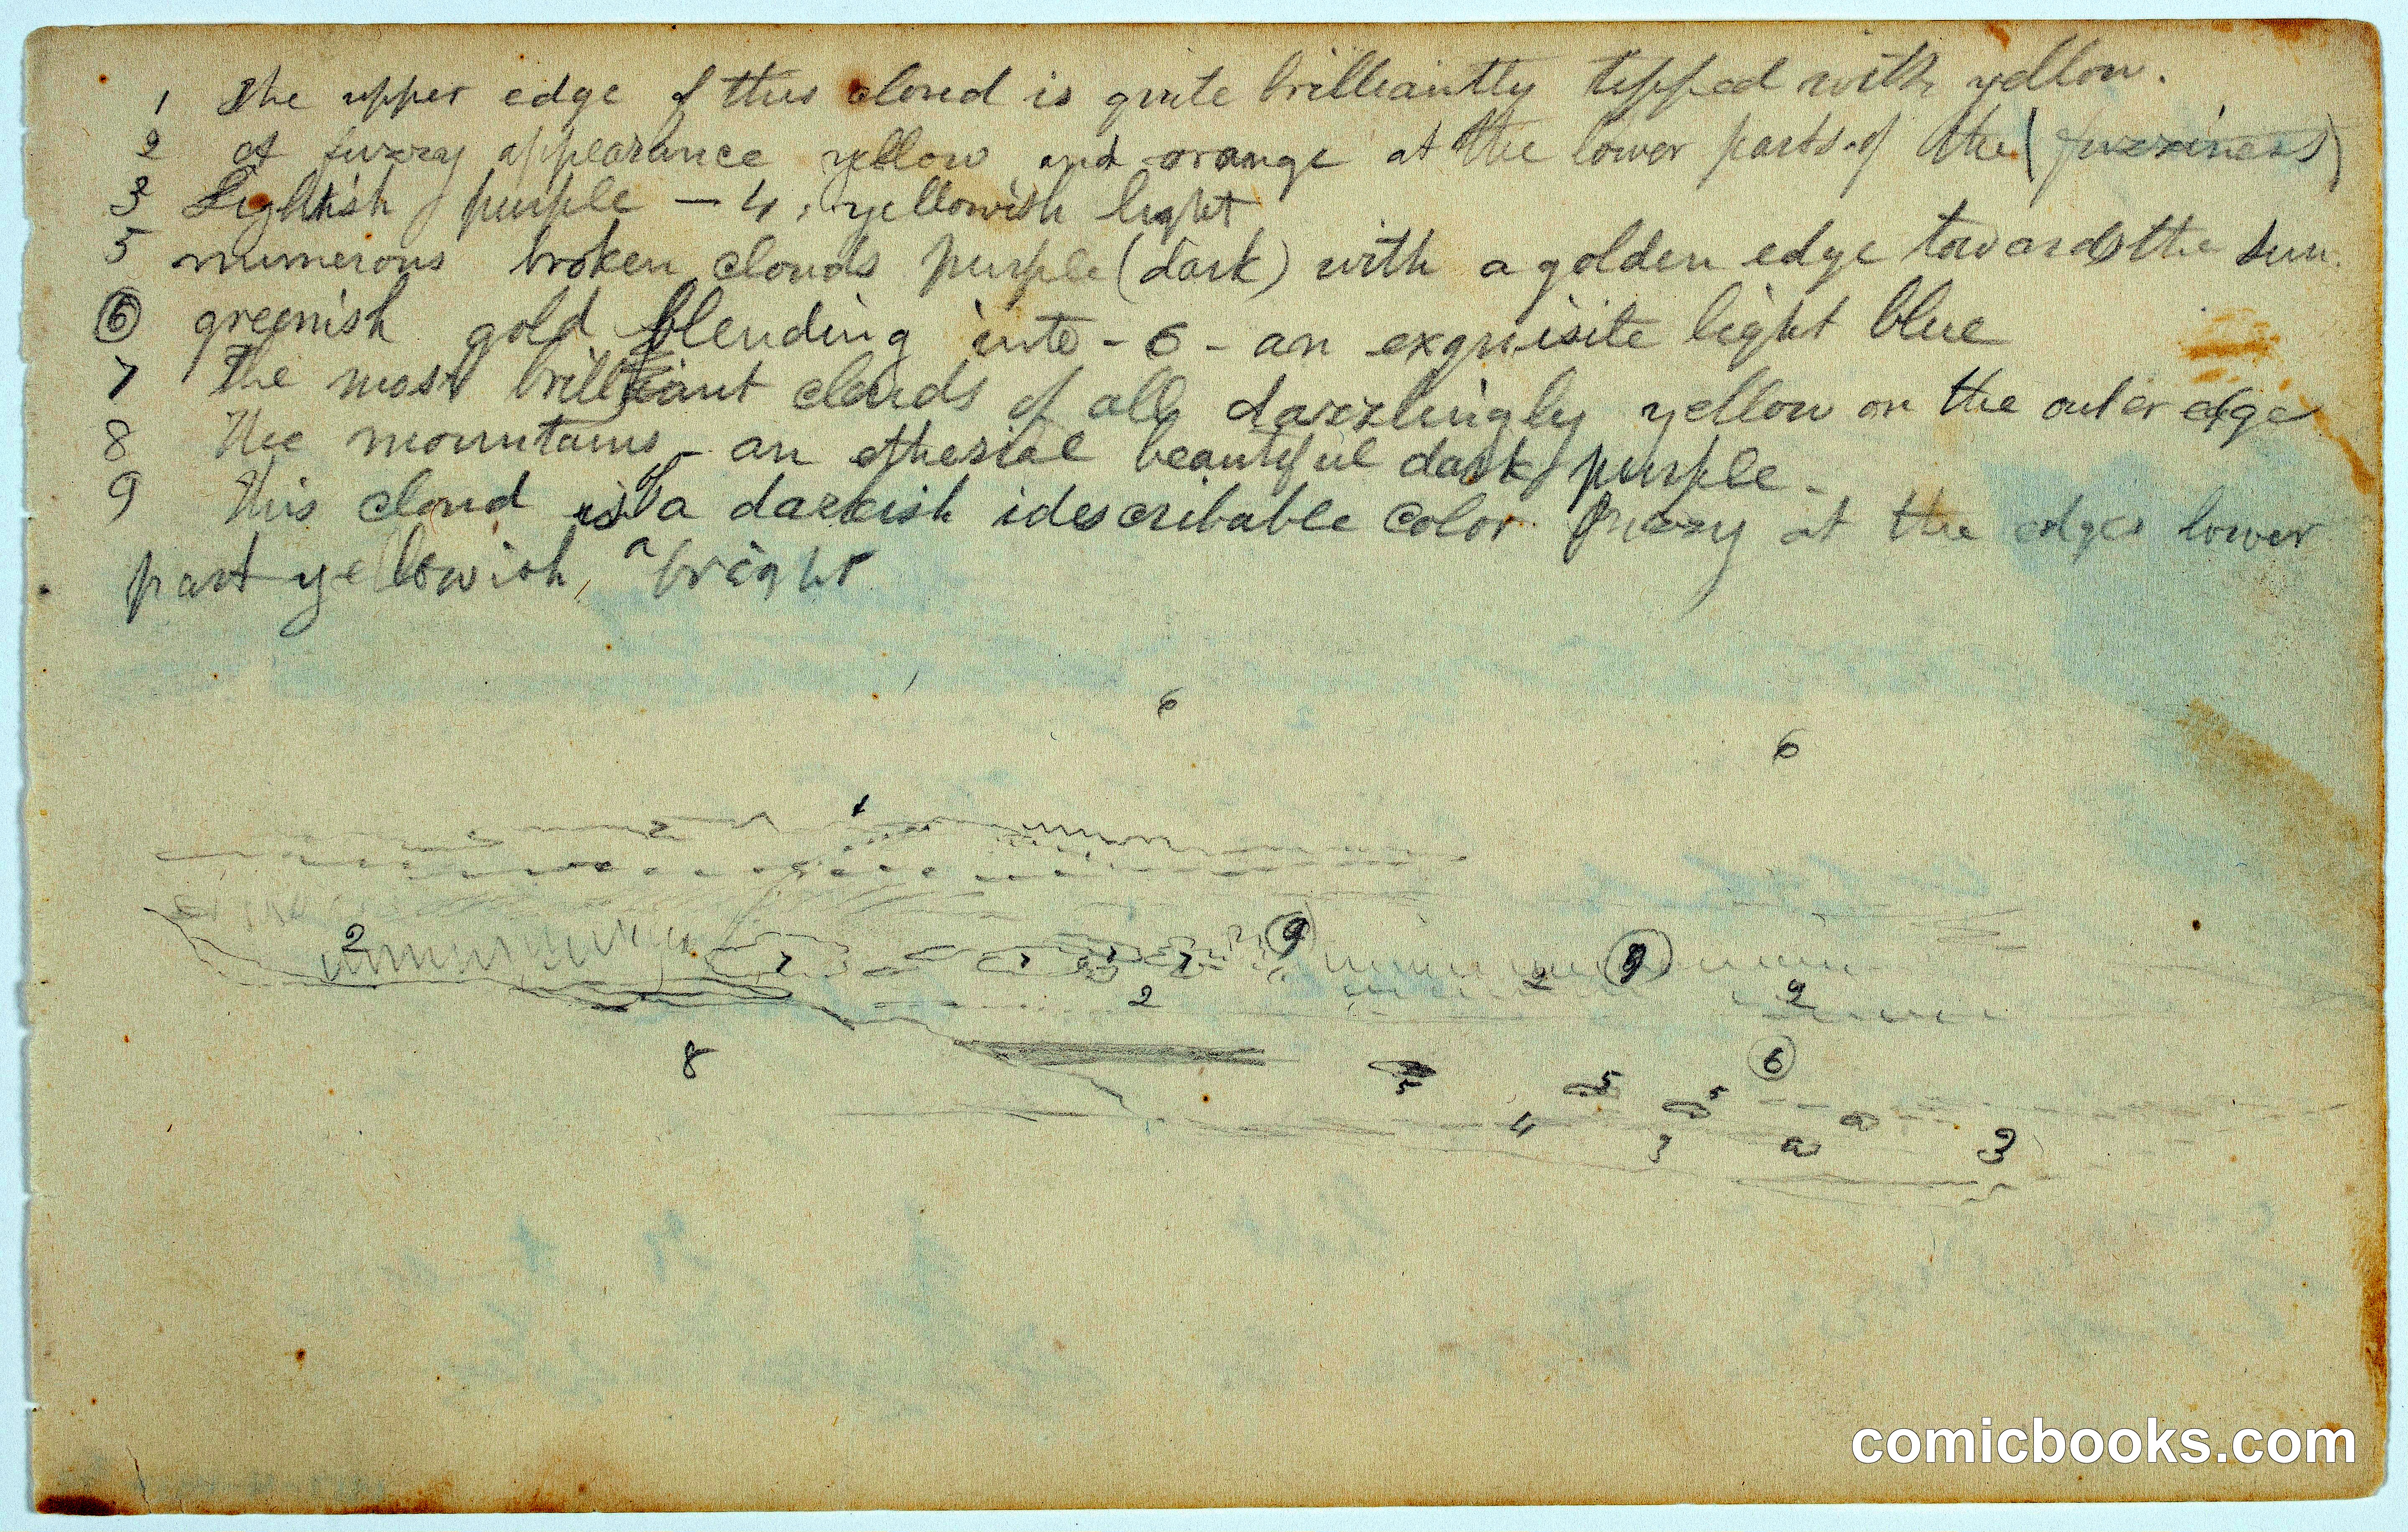 1 The upper edge of this cloud is quite brilliantly tipped with yellow.
2 of fuzzy appearance yellow and orange at the lower parts of the (fuzziness)
3 Lightish purple – 4, yellowish light
5 numerous broken clouds purple (dark) with a golden edge towards the sun.
⑥ greenish gold blending into – 6 – an exquisite light blue
7 The most brilliant clouds of all dazzlingly yellow on the outer edge
8 The mountains – an etherial beautiful dark purple –
9 This cloud is of a darkish idescribable color fuzzy at the edges lower
part yellowish, a bright
6
6
1
2
2 7 7 7 7 ⑨ 2 ⑨
2 2
8 5 5 5 ⑥
4 3 a a 3
comicbooks.com